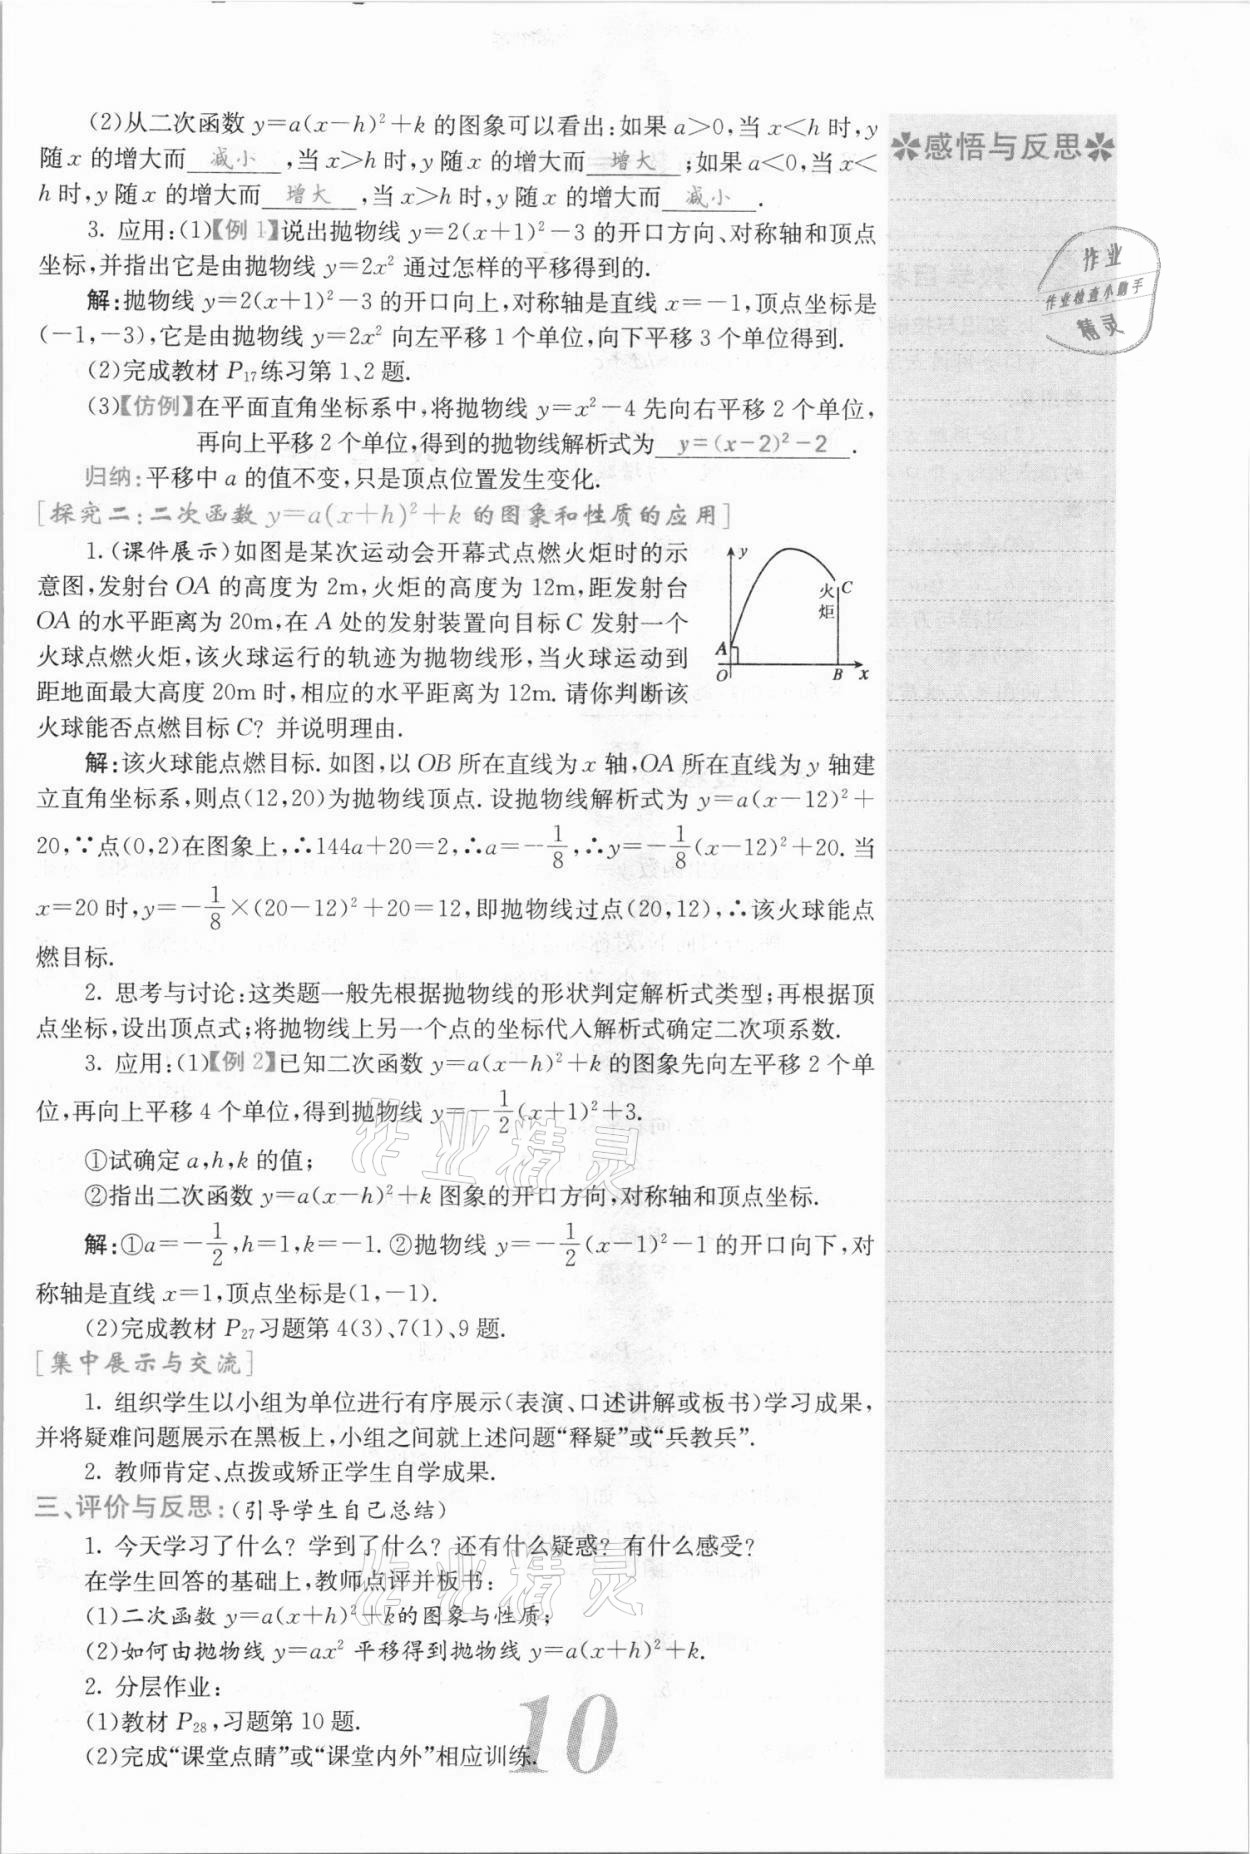 (2)从二次函数 y=a(x-h)²+k 的图象可以看出:如果 a>0,当 x<h 时,y
随 x 的增大而 减小 ,当 x>h 时,y 随 x 的增大而 增大 ;如果 a<0,当 x<
h 时,y 随 x 的增大而 增大 ,当 x>h 时,y 随 x 的增大而 减小 .
3. 应用:(1)【例 1】说出抛物线 y=2(x+1)²-3 的开口方向、对称轴和顶点
坐标,并指出它是由抛物线 y=2x² 通过怎样的平移得到的.
解:抛物线 y=2(x+1)²-3 的开口向上,对称轴是直线 x=-1,顶点坐标是
(-1,-3),它是由抛物线 y=2x² 向左平移 1 个单位,向下平移 3 个单位得到.
(2)完成教材 P₁₇练习第 1、2 题.
(3)【仿例】在平面直角坐标系中,将抛物线 y=x²-4 先向右平移 2 个单位,
再向上平移 2 个单位,得到的抛物线解析式为 y=(x-2)²-2 .
归纳:平移中 a 的值不变,只是顶点位置发生变化.
[探究二:二次函数 y=a(x+h)²+k 的图象和性质的应用]
1.(课件展示)如图是某次运动会开幕式点燃火炬时的示
意图,发射台 OA 的高度为 2m,火炬的高度为 12m,距发射台
OA 的水平距离为 20m,在 A 处的发射装置向目标 C 发射一个
火球点燃火炬,该火球运行的轨迹为抛物线形,当火球运动到
距地面最大高度 20m 时,相应的水平距离为 12m. 请你判断该
火球能否点燃目标 C? 并说明理由.
y
火炬
C
A
O
B
x
解:该火球能点燃目标. 如图,以 OB 所在直线为 x 轴,OA 所在直线为 y 轴建
立直角坐标系,则点(12,20)为抛物线顶点. 设抛物线解析式为 y=a(x-12)²+
20,∵点(0,2)在图象上,∴144a+20=2,∴a=-1/8,∴y=-1/8(x-12)²+20. 当
x=20 时,y=-1/8×(20-12)²+20=12,即抛物线过点(20,12),∴该火球能点
燃目标.
2. 思考与讨论:这类题一般先根据抛物线的形状判定解析式类型;再根据顶
点坐标,设出顶点式;将抛物线上另一个点的坐标代入解析式确定二次项系数.
3. 应用:(1)【例 2】已知二次函数 y=a(x-h)²+k 的图象先向左平移 2 个单
位,再向上平移 4 个单位,得到抛物线 y=-1/2(x+1)²+3.
①试确定 a,h,k 的值;
②指出二次函数 y=a(x-h)²+k 图象的开口方向,对称轴和顶点坐标.
解:①a=-1/2,h=1,k=-1. ②抛物线 y=-1/2(x-1)²-1 的开口向下,对
称轴是直线 x=1,顶点坐标是(1,-1).
(2)完成教材 P₂₇习题第 4(3)、7(1)、9 题.
[集中展示与交流]
1. 组织学生以小组为单位进行有序展示(表演、口述讲解或板书)学习成果,
并将疑难问题展示在黑板上,小组之间就上述问题“释疑”或“兵教兵”.
2. 教师肯定、点拨或矫正学生自学成果.
三、评价与反思:(引导学生自己总结)
1. 今天学习了什么? 学到了什么? 还有什么疑惑? 有什么感受?
在学生回答的基础上,教师点评并板书:
(1)二次函数 y=a(x+h)²+k的图象与性质;
(2)如何由抛物线 y=ax² 平移得到抛物线 y=a(x+h)²+k.
2. 分层作业:
(1)教材 P₂₈,习题第 10 题.
(2)完成“课堂点睛”或“课堂内外”相应训练.
10
感悟与反思
作业
作业检查小助手
精灵
作业精灵
作业精灵